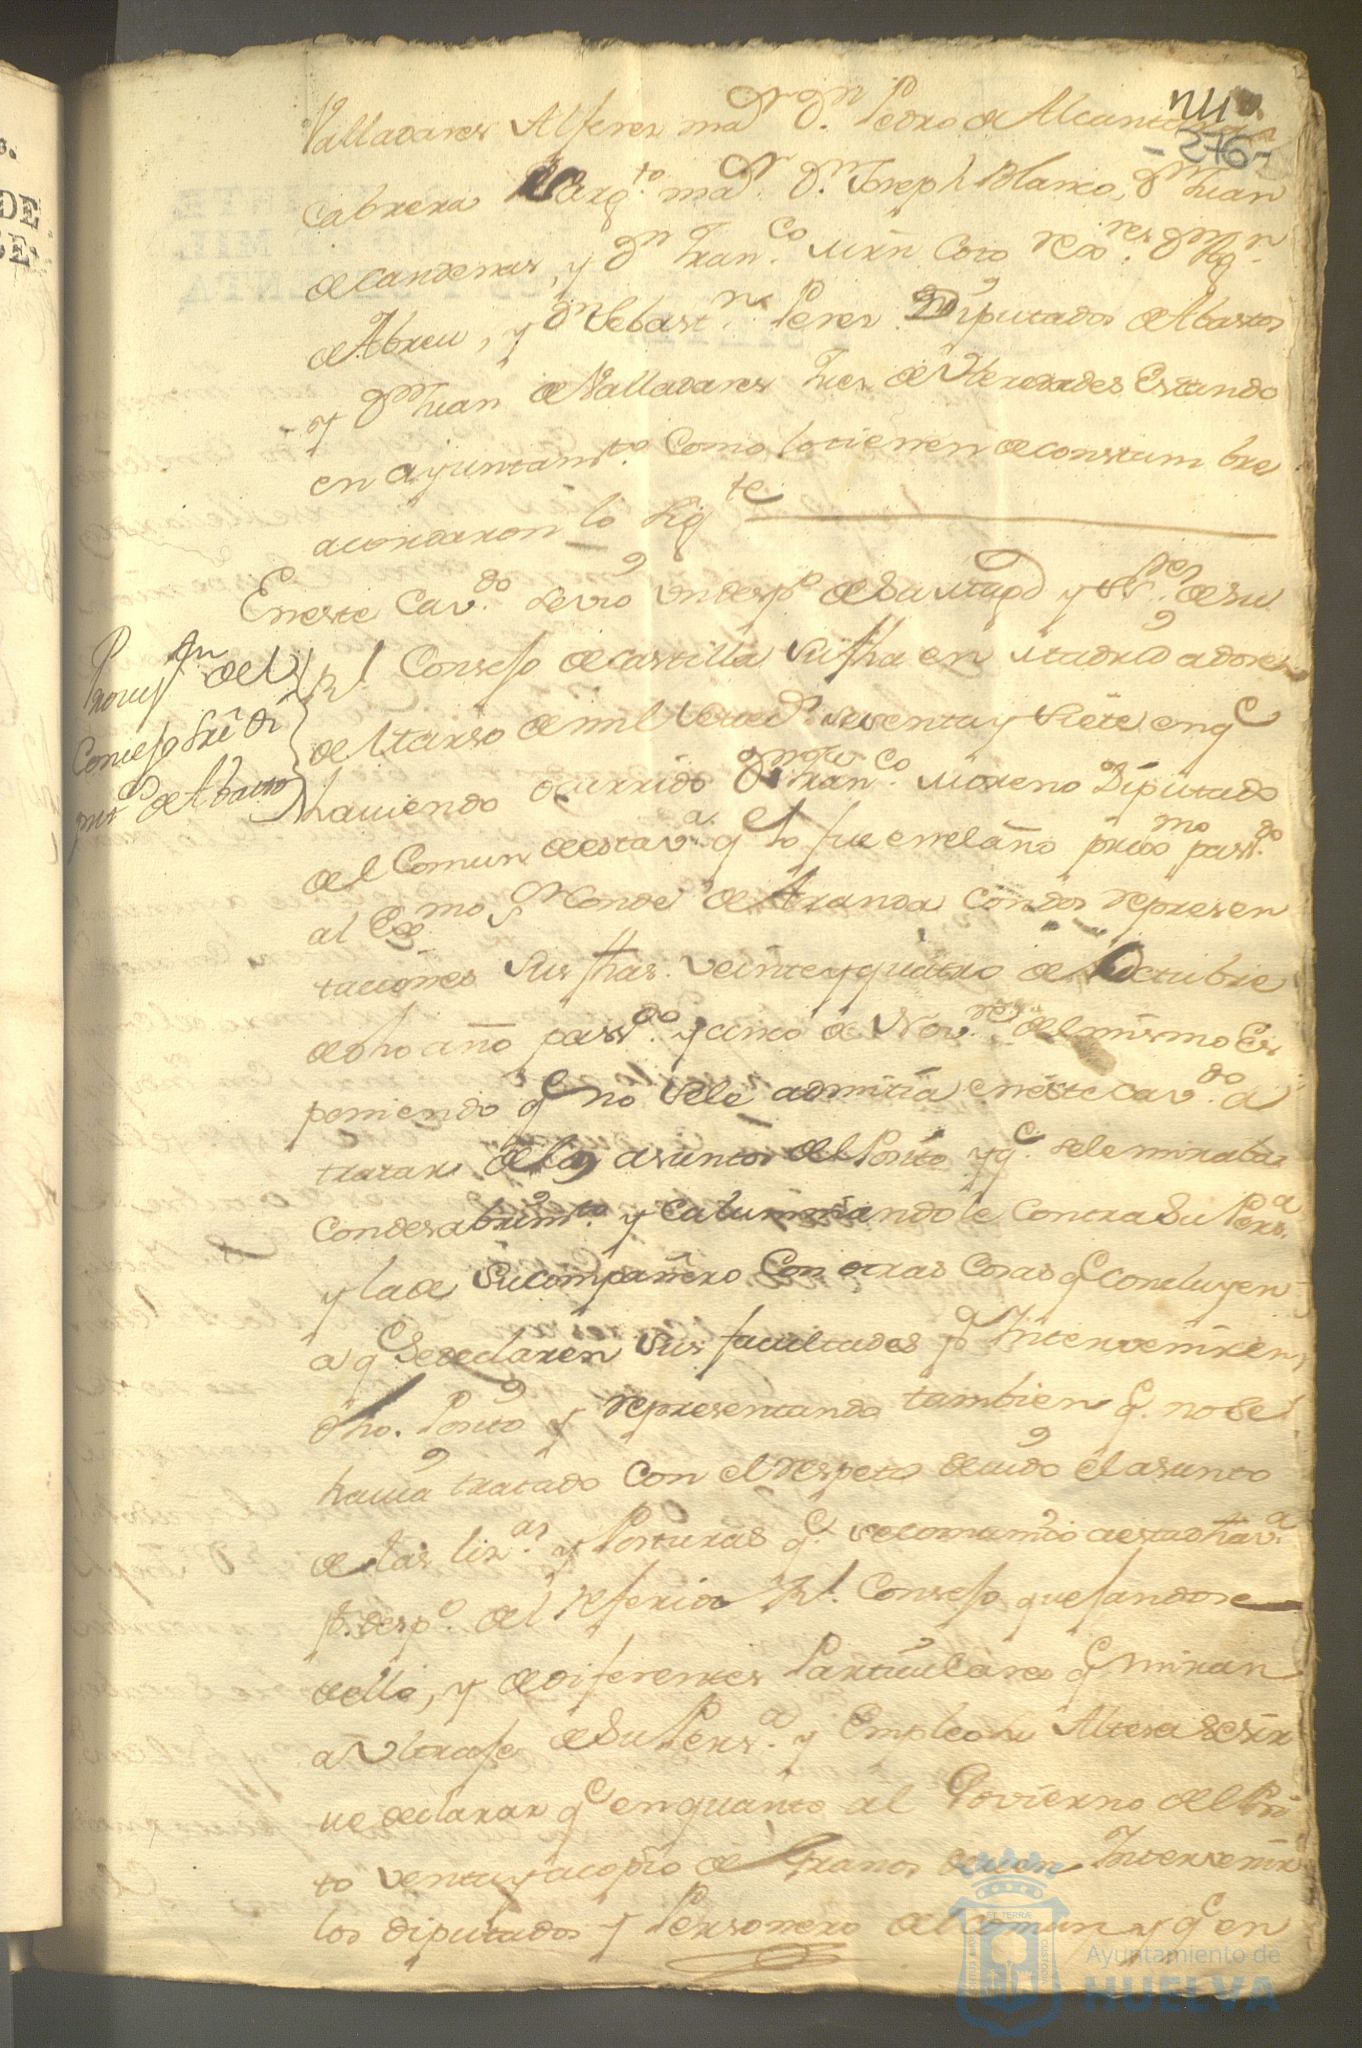 Valladares Alferez maʳ Dⁿ. Pedro de Alcantara
276
Cabrera Alargᵗᵒ maʳ. Dⁿ Joseph Blanco, Dⁿ Juan
de Candenas, y Dⁿ Franᶜᵒ. Mrn Coto Rexᵒʳᵉˢ. Dⁿ
de Abreu, y Dⁿ Sebastⁿ. Perez Diputados de Abastos
y Dⁿ Juan de Valladares Juez de Eredades Estando
en ayuntamᵗᵒ como lo tienen de constumbre
acordaron lo sigᵗᵉ
En este Cavᵈᵒ. se vio un despᵒ de Su Magᵈ y SSʳᵉˢ. de su
Rˡ. Consejo de Castilla su fha en Madrid a doze
de Marso de mil seteᵈˢ. sesenta y siete en qᵉ
haviendo ocurrido Dⁿ Franᶜᵒ. Moreno Diputado
del Comun de esta vᵃ. qᵉ lo fue en el año prixᵐᵒ passᵈᵒ
al Exᵐᵒ Sʳ Conde de Aranda con dos represen
taciones sus fhas. veinte y quatro de Octubre
de dho año passᵈᵒ. y cinco de Novʳᵉ. del mismo Ex
poniendo qᵉ no se le admitia en este Cavᵈᵒ. a
tratar de los asuntos del Posito y qᵉ. se le miraba
con desabrimᵗᵒ. y calumniandole contra su Persᵃ.
y la de su compañero con otras cosas qᵉ concluyen
a qᵉ se declaren sus facultades pᵃ Intervenir en
dho. Posito y representando tambien qᵉ. no se
havia tratado con el respeto devido el asunto
de las lizᵃˢ. y Posturas qᵉ. se comunico a esta dha vᵃ.
pʳ. despᵒ. del referido Rˡ. Consejo quejandose
de ello, y de diferentes Particulares qᵉ miran
a ultraje de su Persᵃ. y Empleo su Alteza se sir
ve declarar qᵉ en quanto al Govierno del Posi
to venta y acopio de Granos deven Intervenir
los diputados y Personero del comun y qᵉ en
Provisⁿ del
Consejo sre di
putᵈᵒˢ de Abasto
Ayuntamiento de
HUELVA